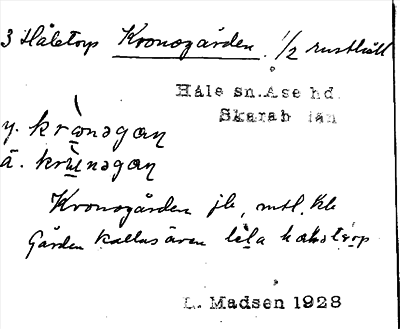 3 Håletorp Kronogården. 1/2 rusthåll
Håle sn. Åse hd.
Skarab län
y. krònəgaɳ
ä. krùnəgaɳ
Kronogården jb, mtl. Kb
Gården kallas även
L. Madsen 1928